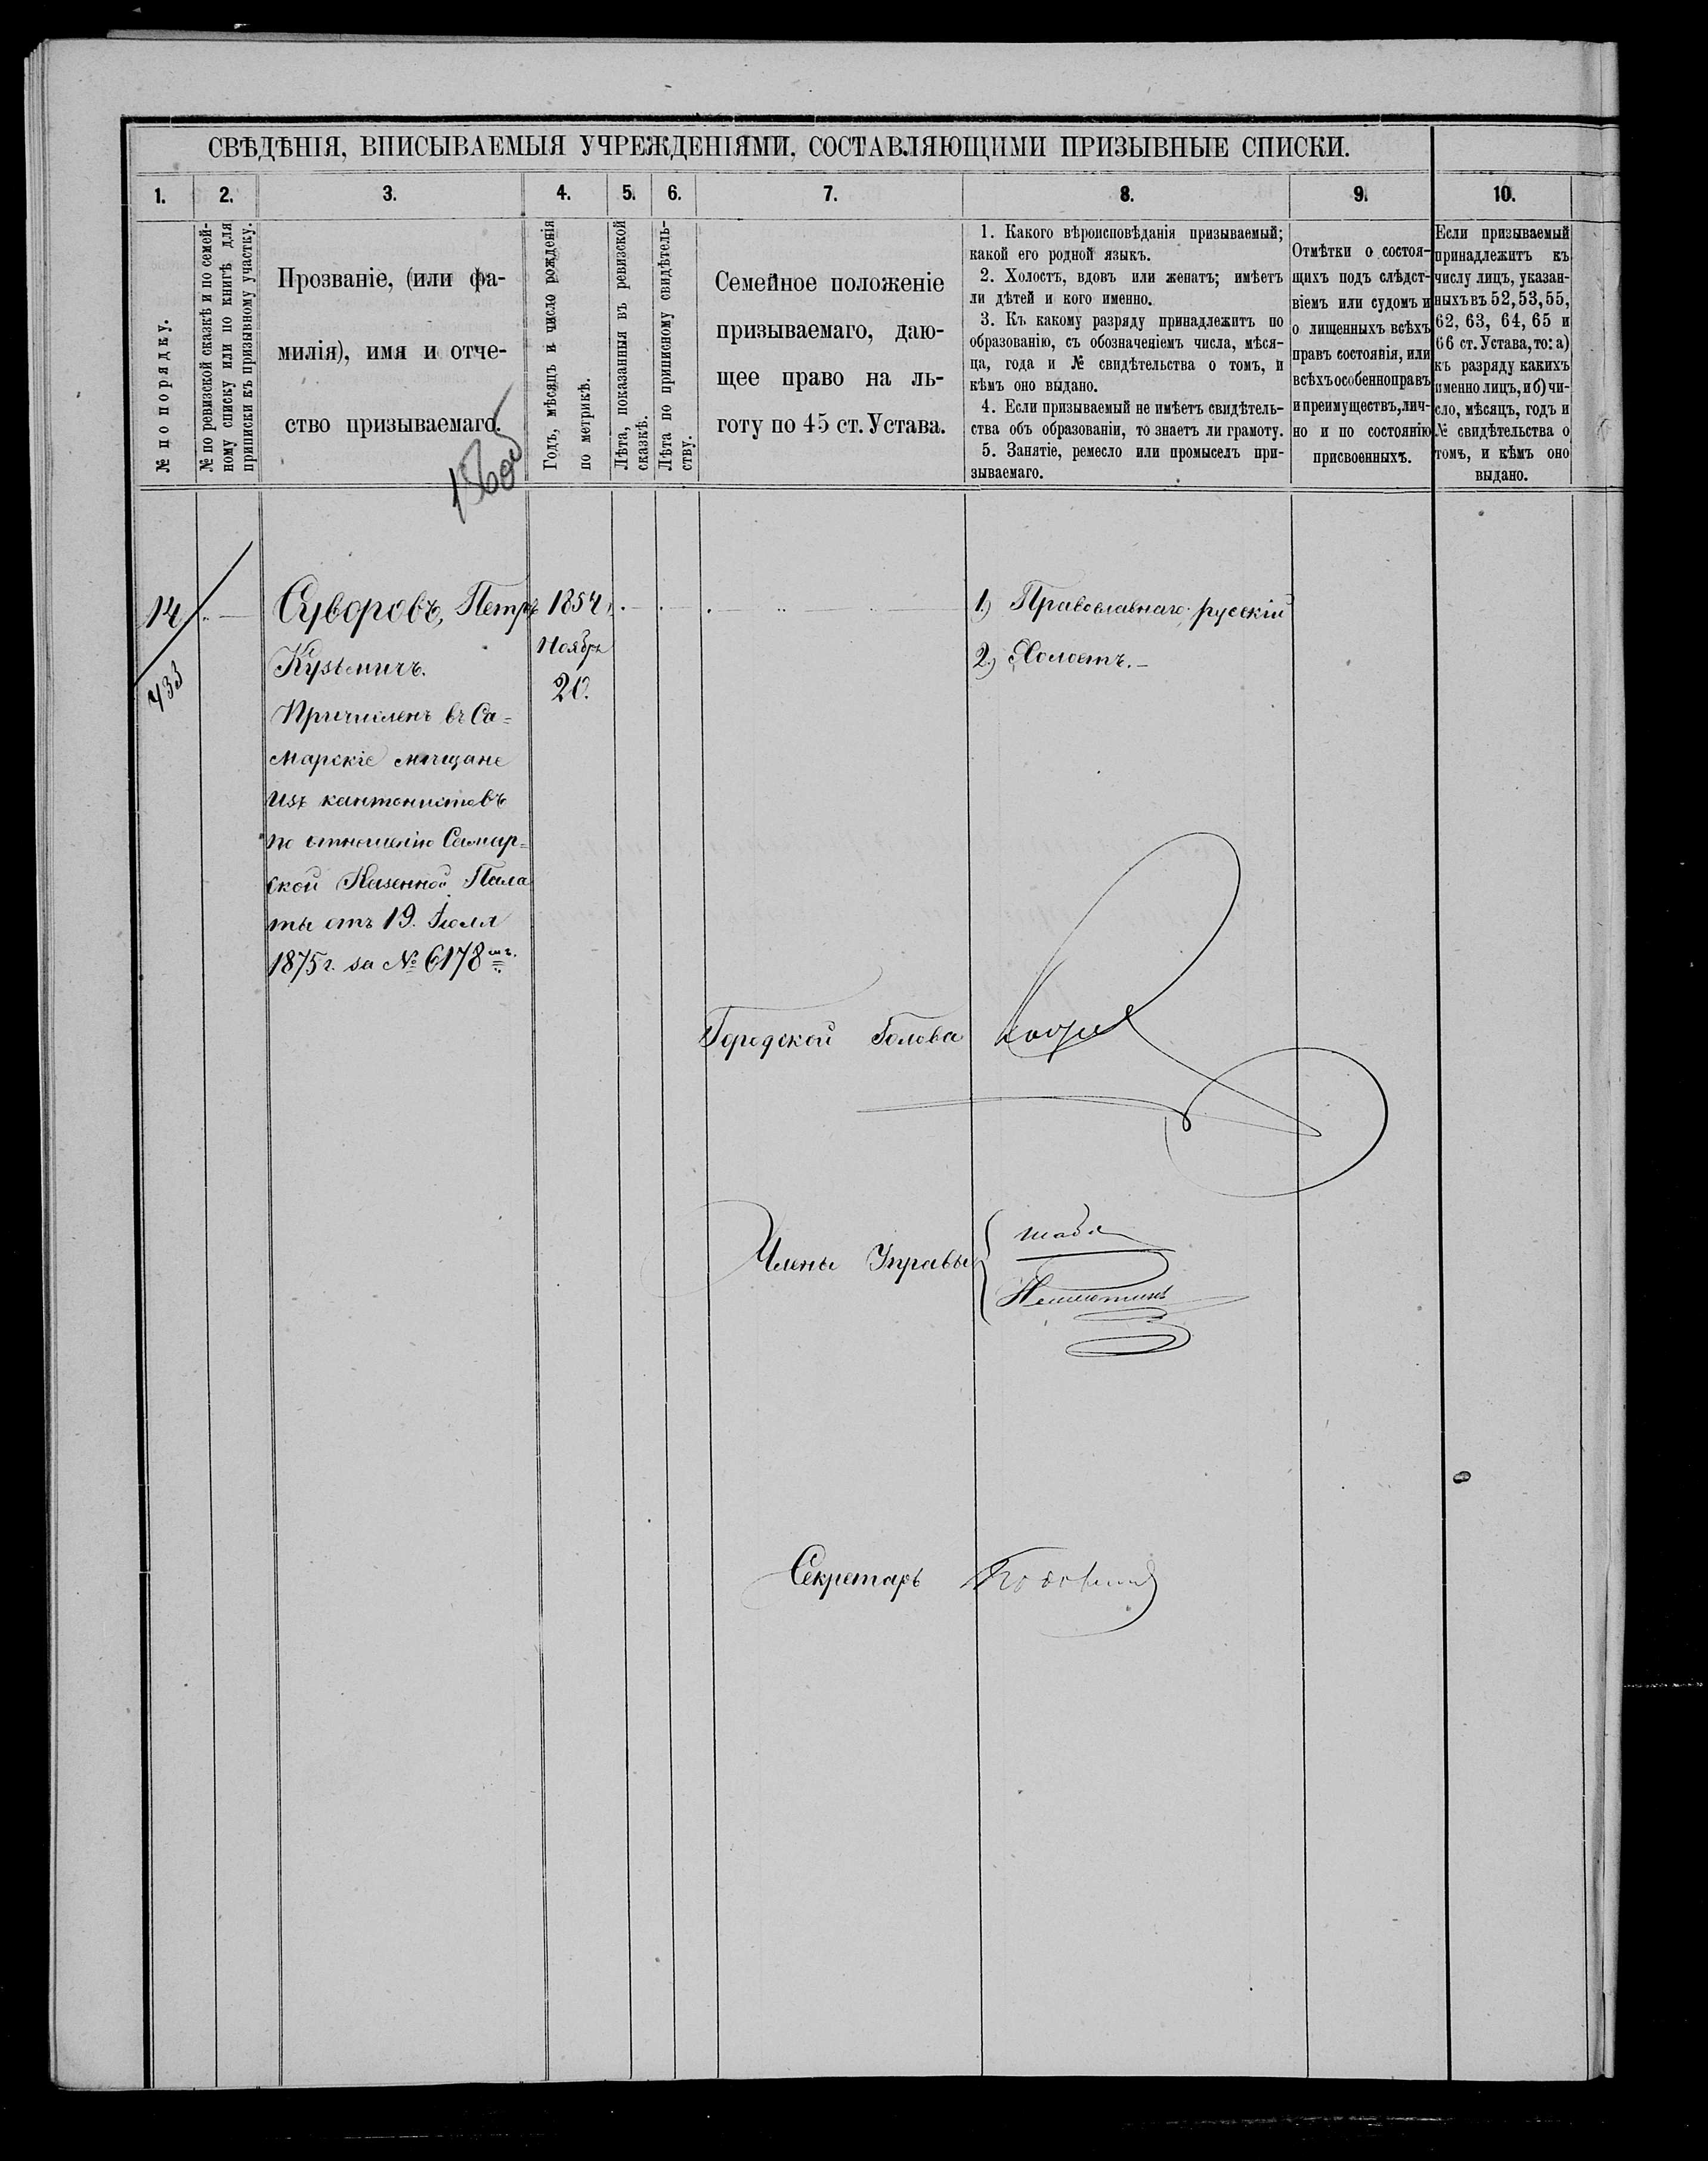 СВѢДѢНІЯ, ВПИСЫВАЕМЫЯ УЧРЕЖДЕНІЯМИ, СОСТАВЛЯЮЩИМИ ПРИЗЫВНЫЕ СПИСКИ.
1.
2.
3.
4.
5.
6.
7.
8.
9.
10.
№ по порядку.
№ по ревизской сказкѣ и по семей-
ному списку или по книгѣ для
приписки къ призывному участку.
Прозваніе, (или фа-
милія), имя и отче-
ство призываемаго.
Годъ, мѣсяцъ и число рожденія
по метрикѣ.
Лѣта, показанныя въ ревизской
сказкѣ.
Лѣта по приписному свидѣтель-
ству.
Семейное положеніе
призываемаго, даю-
щее право на ль-
готу по 45 ст. Устава.
1. Какого вѣроисповѣданія призываемый;
какой его родной языкъ.
2. Холостъ, вдовъ или женатъ; имѣетъ
ли дѣтей и кого именно.
3. Къ какому разряду принадлежитъ по
образованію, съ обозначеніемъ числа, мѣся-
ца, года и № свидѣтельства о томъ, и
кѣмъ оно выдано.
4. Если призываемый не имѣетъ свидѣтель-
ства объ образованіи, то знаетъ ли грамоту.
5. Занятіе, ремесло или промыселъ при-
зываемаго.
Отмѣтки о состоя-
щихъ подъ слѣдст-
віемъ или судомъ и
о лишенныхъ всѣхъ
правъ состоянія, или
всѣхъ особенно правъ
и преимуществъ, лич-
но и по состоянію
присвоенныхъ.
Если призываемый
принадлежитъ къ
числу лицъ, указан-
ныхъ въ 52, 53, 55,
62, 63, 64, 65 и
66 ст. Устава, то: а)
къ разряду какихъ
именно лицъ, и б) чи-
сло, мѣсяцъ, годъ и
№ свидѣтельства о
томъ, и кѣмъ оно
выдано.
14
433
Суворовъ, Петръ
Кузьмичъ.
Причисленъ въ Са=
марскіе мѣщане
изъ кантонистовъ
по отношенію Самар=
ской Казенной Пала
ты отъ 19. Іюля
1875 г. за № 6178 мъ.
1854
Ноября
20.
1.) Православнаго русскій
2.) Холостъ.
Городской Голова
Члены Управы
Секретарь